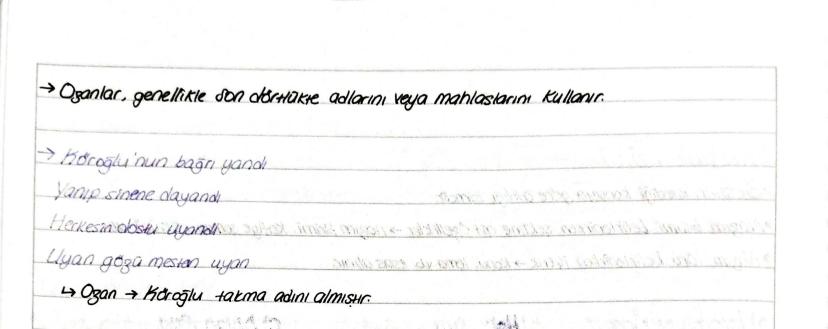 → Ozanlar, genellikle son dörtlükte adlarını veya mahlaslarını kullanır.
→ Köroğlu'nun bağrı yandı
Yanıp sinene dayandı
Herkesin dostu uyandı
Uyan göza mesten uyan
↳ Ozan → Köroğlu takma adını almıştır.